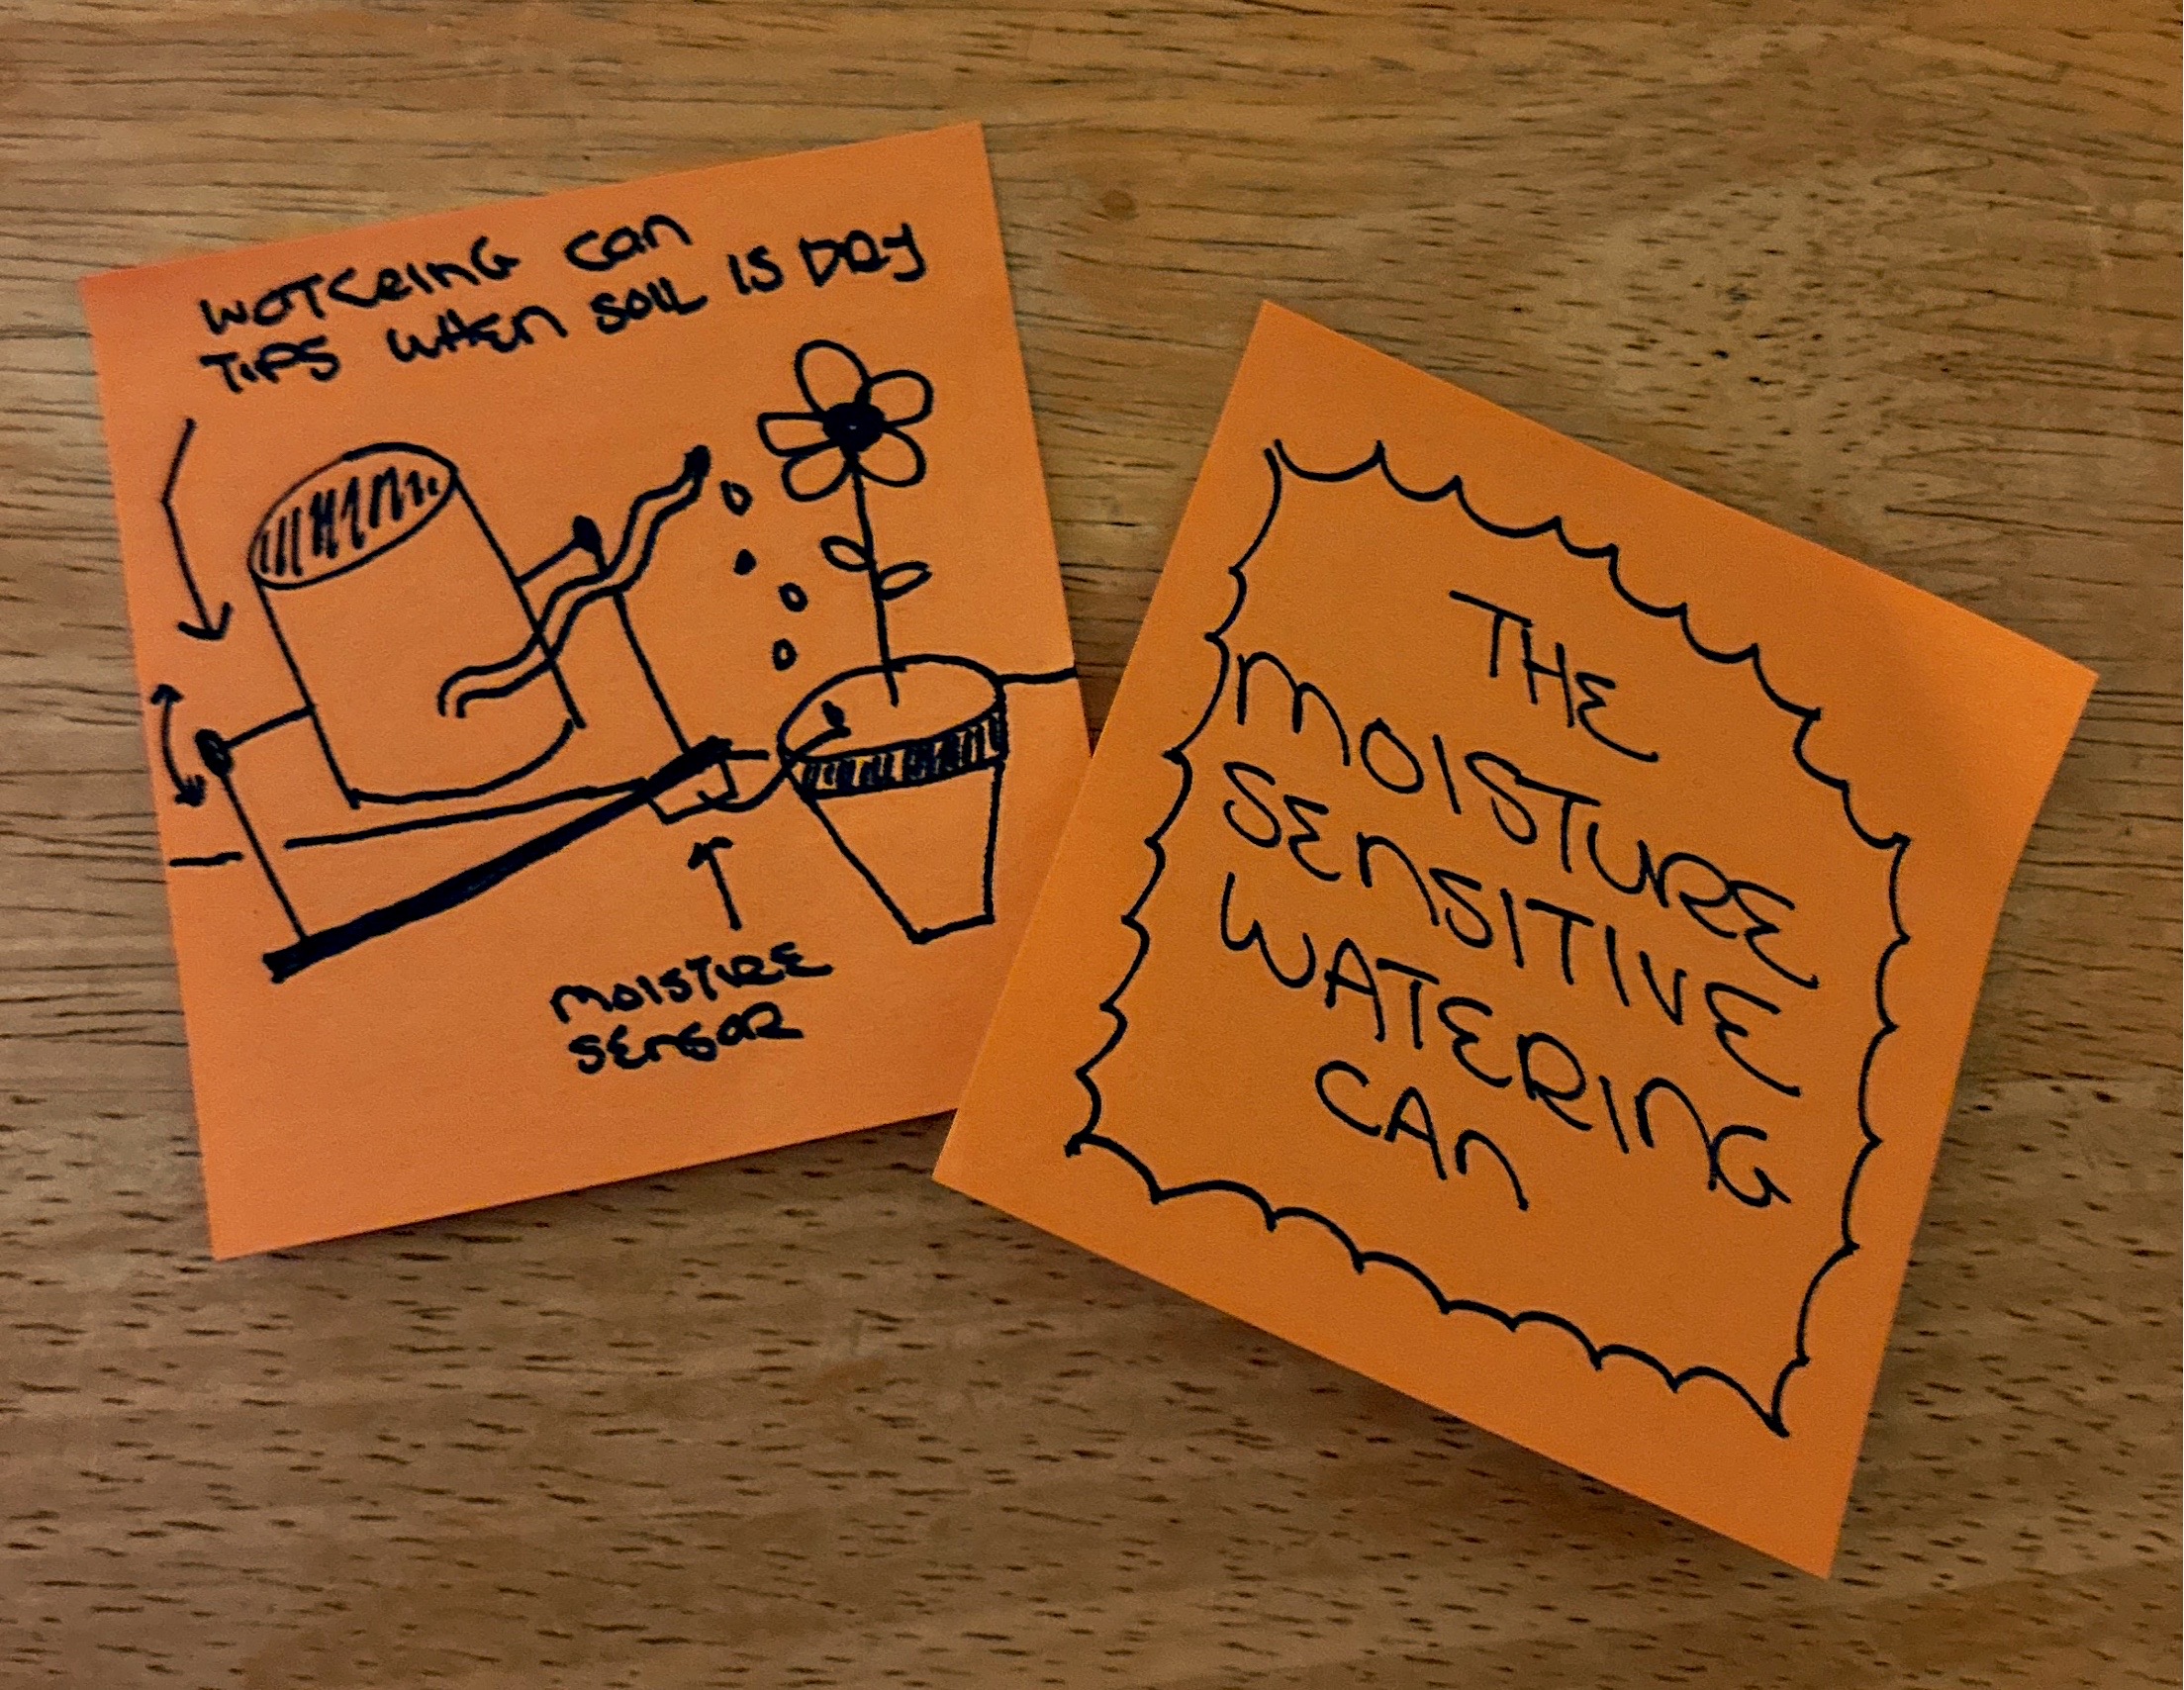 WATERING CAN
TIPS WHEN SOIL IS DRY
MOISTURE
SENSOR
THE
MOISTURE
SENSITIVE
WATERING
CAN